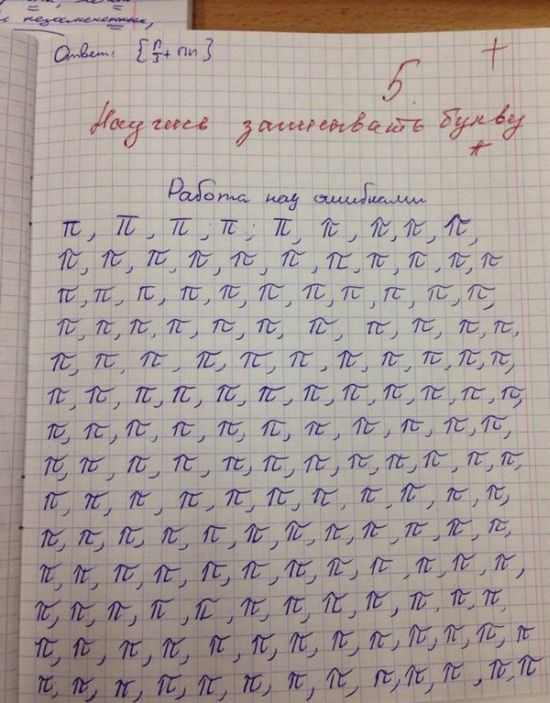 Ответ: {π/3 + πn}
5. +
Научись записывать букву
π
Работа над ошибками
π, π, π, π; π, π, π, π, π,
π, π, π, π, π, π, π, π, π, π, π
π, π, π, π, π, π, π, π, π, π, π,
π, π, π, π, π, π, π, π, π, π, π,
π, π, π, π, π, π, π, π, π, π, π,
π, π, π, π, π, π, π, π, π, π, π, π,
π, π, π, π, π, π, π, π, π, π, π,
π, π, π, π, π, π, π, π, π, π, π, π,
π, π, π, π, π, π, π, π, π, π, π,
π, π, π, π, π, π, π, π, π, π, π, π,
π, π, π, π, π, π, π, π, π, π, π, π,
π, π, π, π, π, π, π, π, π, π, π, π,
π, π, π, π, π, π, π, π, π, π, π, π, π, π
π, π, π, π, π, π, π, π, π, π, π, π, π